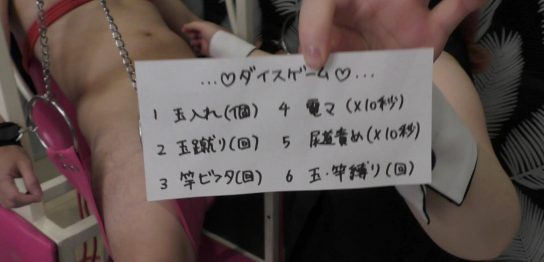 …♡ダイスゲーム♡…
1 玉入れ(個) 4 電マ(×10秒)
2 玉蹴り(回) 5 尿道責め(×10秒)
3 竿ビンタ(回) 6 玉・竿縛り(回)